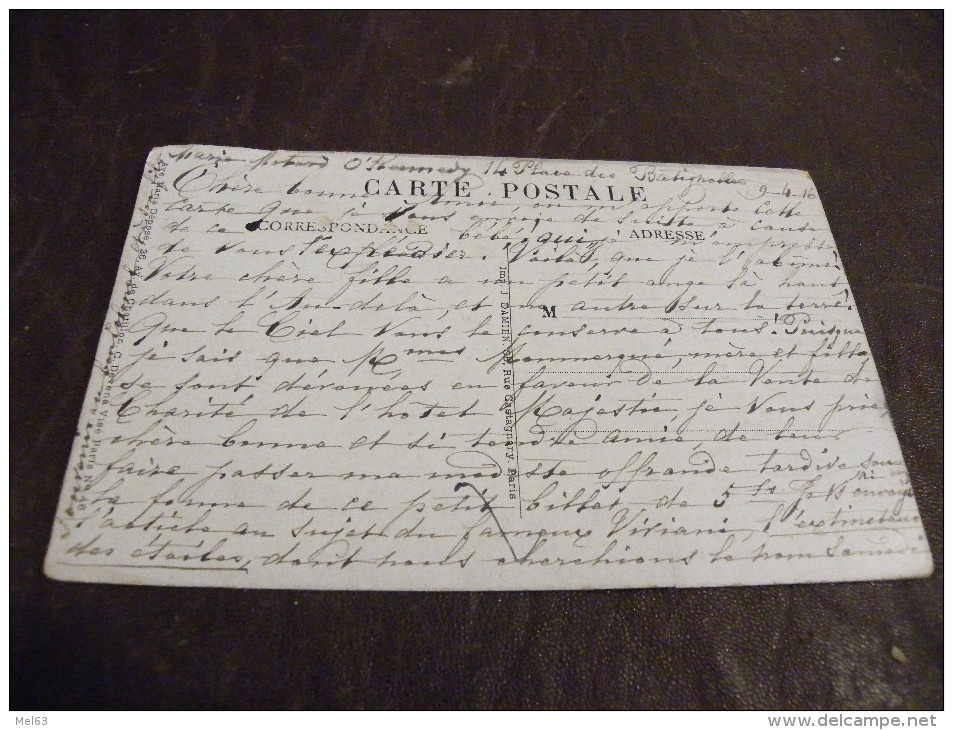 Marie O'Kennedy 14 Place des Batignolles
9-4-16
CARTE POSTALE
Chère bonne amie on m'apporte cette
carte que je vous envoie de suite à cause
CORRESPONDANCE
ADRESSE
de ce bébé qui
de vous l'expédier. Voilà, que je l'ai
Votre chère fille a un petit ange là haut
dans l'Au-delà, et un autre sur la terre!
M
Que le Ciel vous le conserve à tous! Puisque
je sais que Mmes Monmerqué, mère et fille,
se sont dévouées en faveur de la Vente de
Charité de l'hôtel Majestic, je vous prie,
chère bonne et si tendre amie, de leur
faire passer ma modeste offrande tardive sous
la forme de ce petit billet de 5 fs Je vs envoye
l'article au sujet du fameux Viviani, l'extincteur
des étoiles, dont nous cherchions le nom Samedi
Imp. I. DAMIEN Rue Castagnary, Paris
Mel63
www.delcampe.net